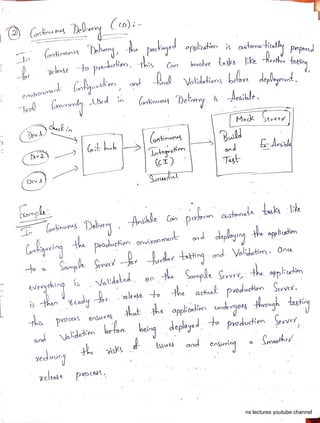 ② Continuous Delivery (CD):-
In Continuous Delivery, the packaged application is automatically prepared
for release to production. This can involve tasks like further testing,
environment Configuration, and final Validations before deployment.
Tool Commonly Used in Continuous Delivery is Ansible.
Dev 1
check in
Dev 2
Dev 3
Git hub
Continuous
Integration
(CI)
Successful
Mock Server
Build
and
Test
Ex: Ansible
Example:
In Continuous Delivery, Ansible can perform automate tasks like
Configuring the production environment and deploying the application
to a Sample Server for further testing and Validation. Once
everything is Validated on the Sample Server, the application
is then ready for release to the actual production Server.
this process ensures that the application undergoes through testing
and Validation before being deployed to production Server,
reducing the risks of Issues and ensuring a Smoother
release process.
ns lectures youtube channel